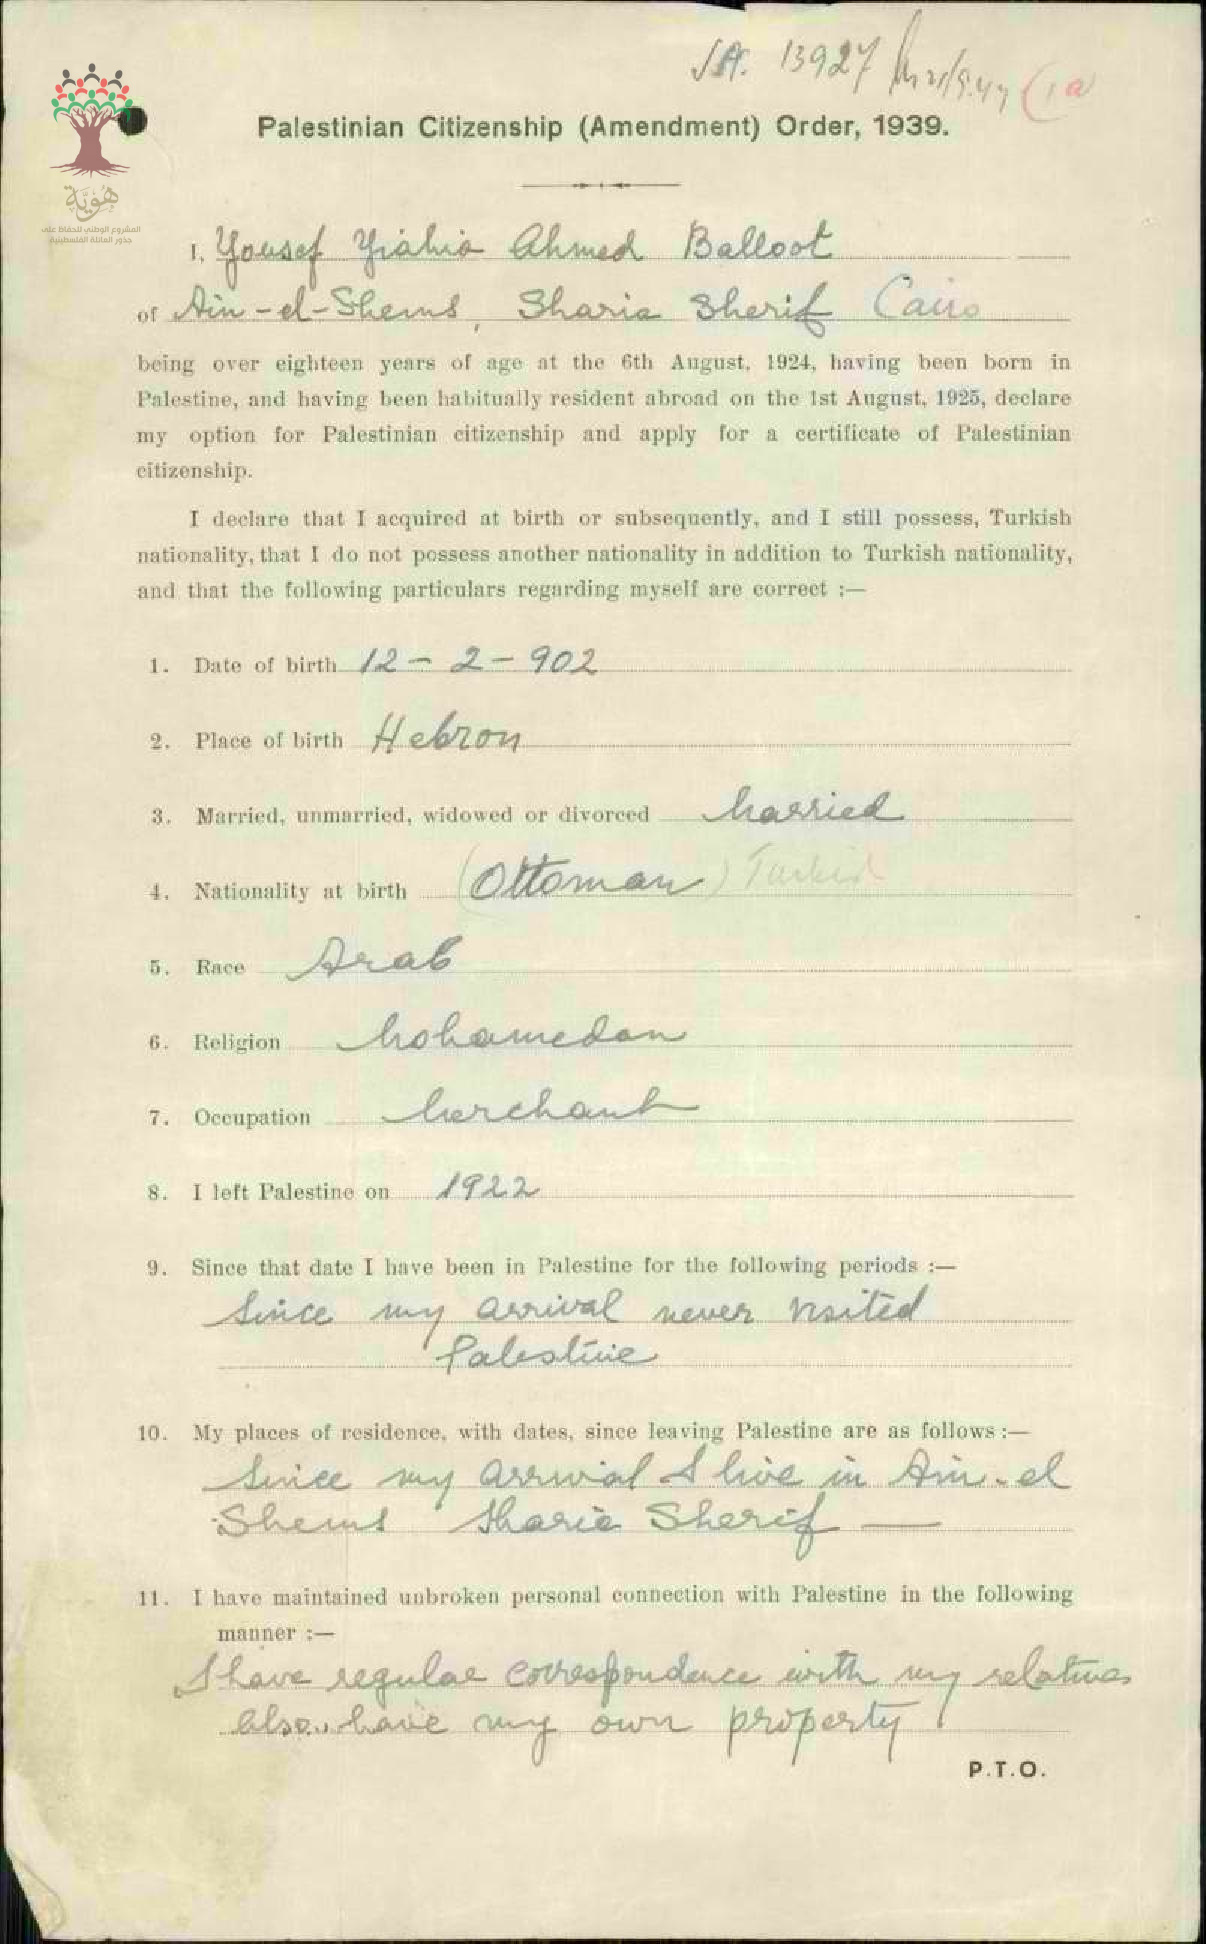 13927
(1a
هُويَّة
المشروع الوطني للحفاظ على
جذور العائلة الفلسطينية
Palestinian Citizenship (Amendment) Order, 1939.
I, Yousef Yiahia Ahmed Balloot
of Ain-el-Shems, Sharia Sherif Cairo
being over eighteen years of age at the 6th August, 1924, having been born in
Palestine, and having been habitually resident abroad on the 1st August, 1925, declare
my option for Palestinian citizenship and apply for a certificate of Palestinian
citizenship.
I declare that I acquired at birth or subsequently, and I still possess, Turkish
nationality, that I do not possess another nationality in addition to Turkish nationality,
and that the following particulars regarding myself are correct :—
1. Date of birth 12-2-902
2. Place of birth Hebron
3. Married, unmarried, widowed or divorced Married
4. Nationality at birth (Ottoman) Turkish
5. Race Arab
6. Religion Mohamedan
7. Occupation Merchant
8. I left Palestine on 1922
9. Since that date I have been in Palestine for the following periods :—
Since my arrival never visited
Palestine
10. My places of residence, with dates, since leaving Palestine are as follows :—
Since my arrival I live in Ain-el
Shems Sharia Sherif —
11. I have maintained unbroken personal connection with Palestine in the following
manner :—
I have regular correspondence with my relatives
also have my own property
P.T.O.